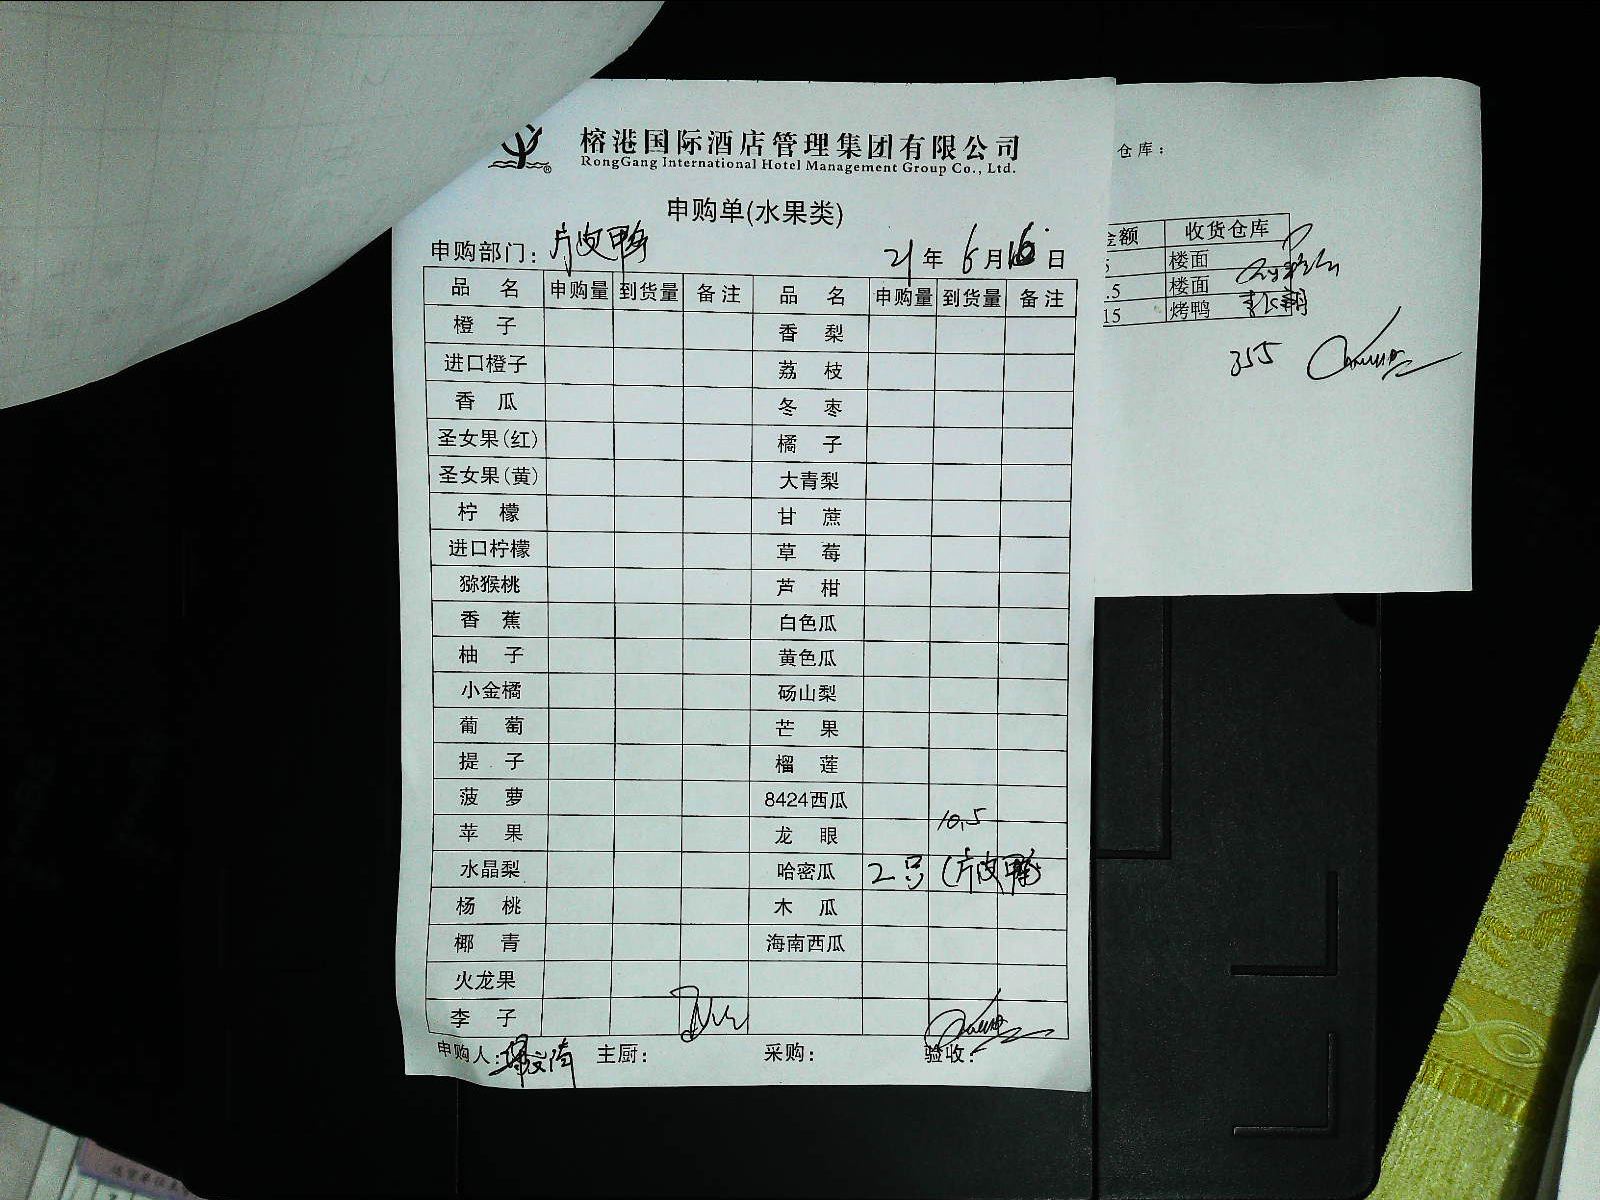 榕港国际酒店管理集团有限公司
RongGang International Hotel Management Group Co., Ltd.
申购单(水果类)
申购部门: 片皮鸭 21年6月16日
品名 申购量 到货量 备注 品名 申购量 到货量 备注
橙子 香梨
进口橙子 荔枝
香瓜 冬枣
圣女果(红) 橘子
圣女果(黄) 大青梨
柠檬 甘蔗
进口柠檬 草莓
猕猴桃 芦柑
香蕉 白色瓜
柚子 黄色瓜
小金橘 砀山梨
葡萄 芒果
提子 榴莲
菠萝 8424西瓜
苹果 龙眼 10.5
水晶梨 哈密瓜 2只 (片皮鸭)
杨桃 木瓜
椰青 海南西瓜
火龙果
李子
申购人: 主厨: 采购: 验收:
仓库:
金额 收货仓库
5 楼面
.5 楼面
15 烤鸭
355